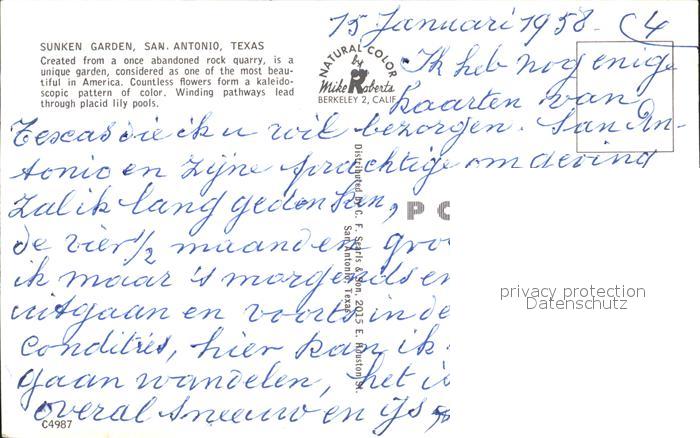 15 Januari 1958. C4
SUNKEN GARDEN, SAN ANTONIO, TEXAS
Created from a once abandoned rock quarry, is a
unique garden, considered as one of the most beau-
tiful in America. Countless flowers form a kaleido-
scopic pattern of color. Winding pathways lead
through placid lily pools.
NATURAL COLOR
by
Mike Roberts
BERKELEY 2, CALIF
Ik heb nog enige
kaarten van
Texas die ik u wil bezorgen. San An-
tonio en zijne prachtige omgeving
zal ik lang gedenken,
de vier 1/2 maanden
ik maar 's morgends en
uitgaan en voorts in de
condities, hier kan ik
gaan wandelen, het is
overal sneeuw en ijs
Distributed by C. F. Searls & Son, 2015 E. Houston St.
San Antonio, Texas
P C
privacy protection
Datenschutz
C4987